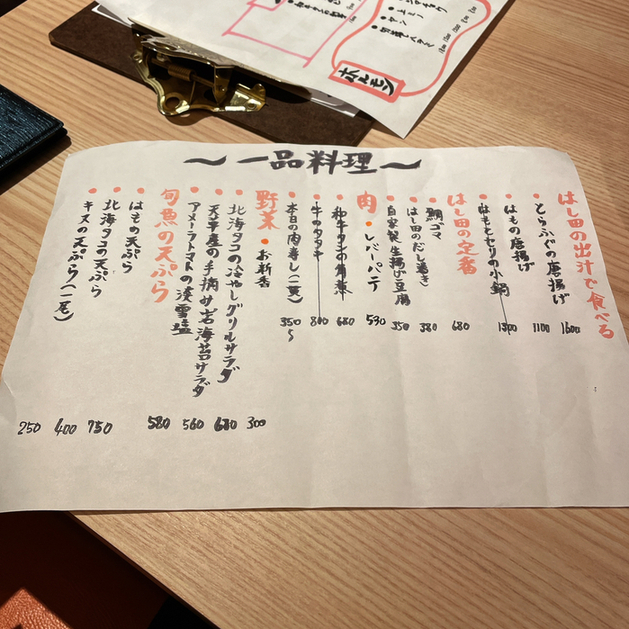 ホルモン
〜一品料理〜
はし田の出汁で食べる
とらふぐの唐揚げ 1600
はもの唐揚げ 1100
はもとセリの小鍋 1300
はし田の定番
鯛ゴマ 680
はし田のだし巻き 380
自家製生揚げ豆腐 350
肉
レバーパテ 590
和牛タンの角煮 680
牛のタタキ 800
本日の肉寿し(二貫) 350〜
野菜
お新香 300
北海タコの冷やしグリルサラダ 680
天草産の手摘サ岩海苔サラダ 560
アメーラトマトの淡雪塩 580
旬魚の天ぷら
はもの天ぷら 750
北海タコの天ぷら 400
キスの天ぷら(一尾) 250